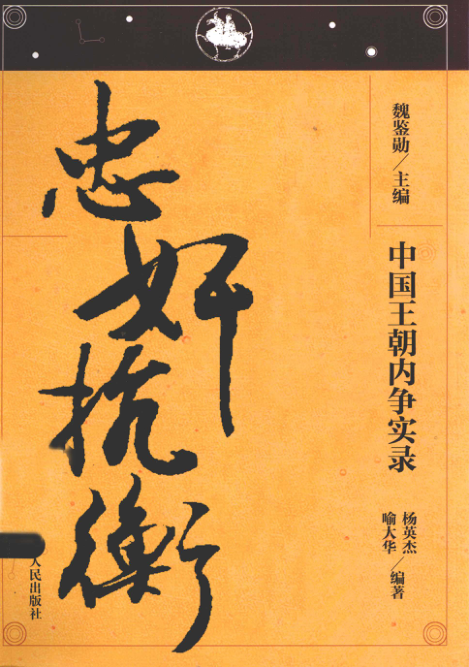 忠奸抗衡
魏鉴勋/主编
中国王朝内争实录
杨英杰
喻大华/编著
人民出版社